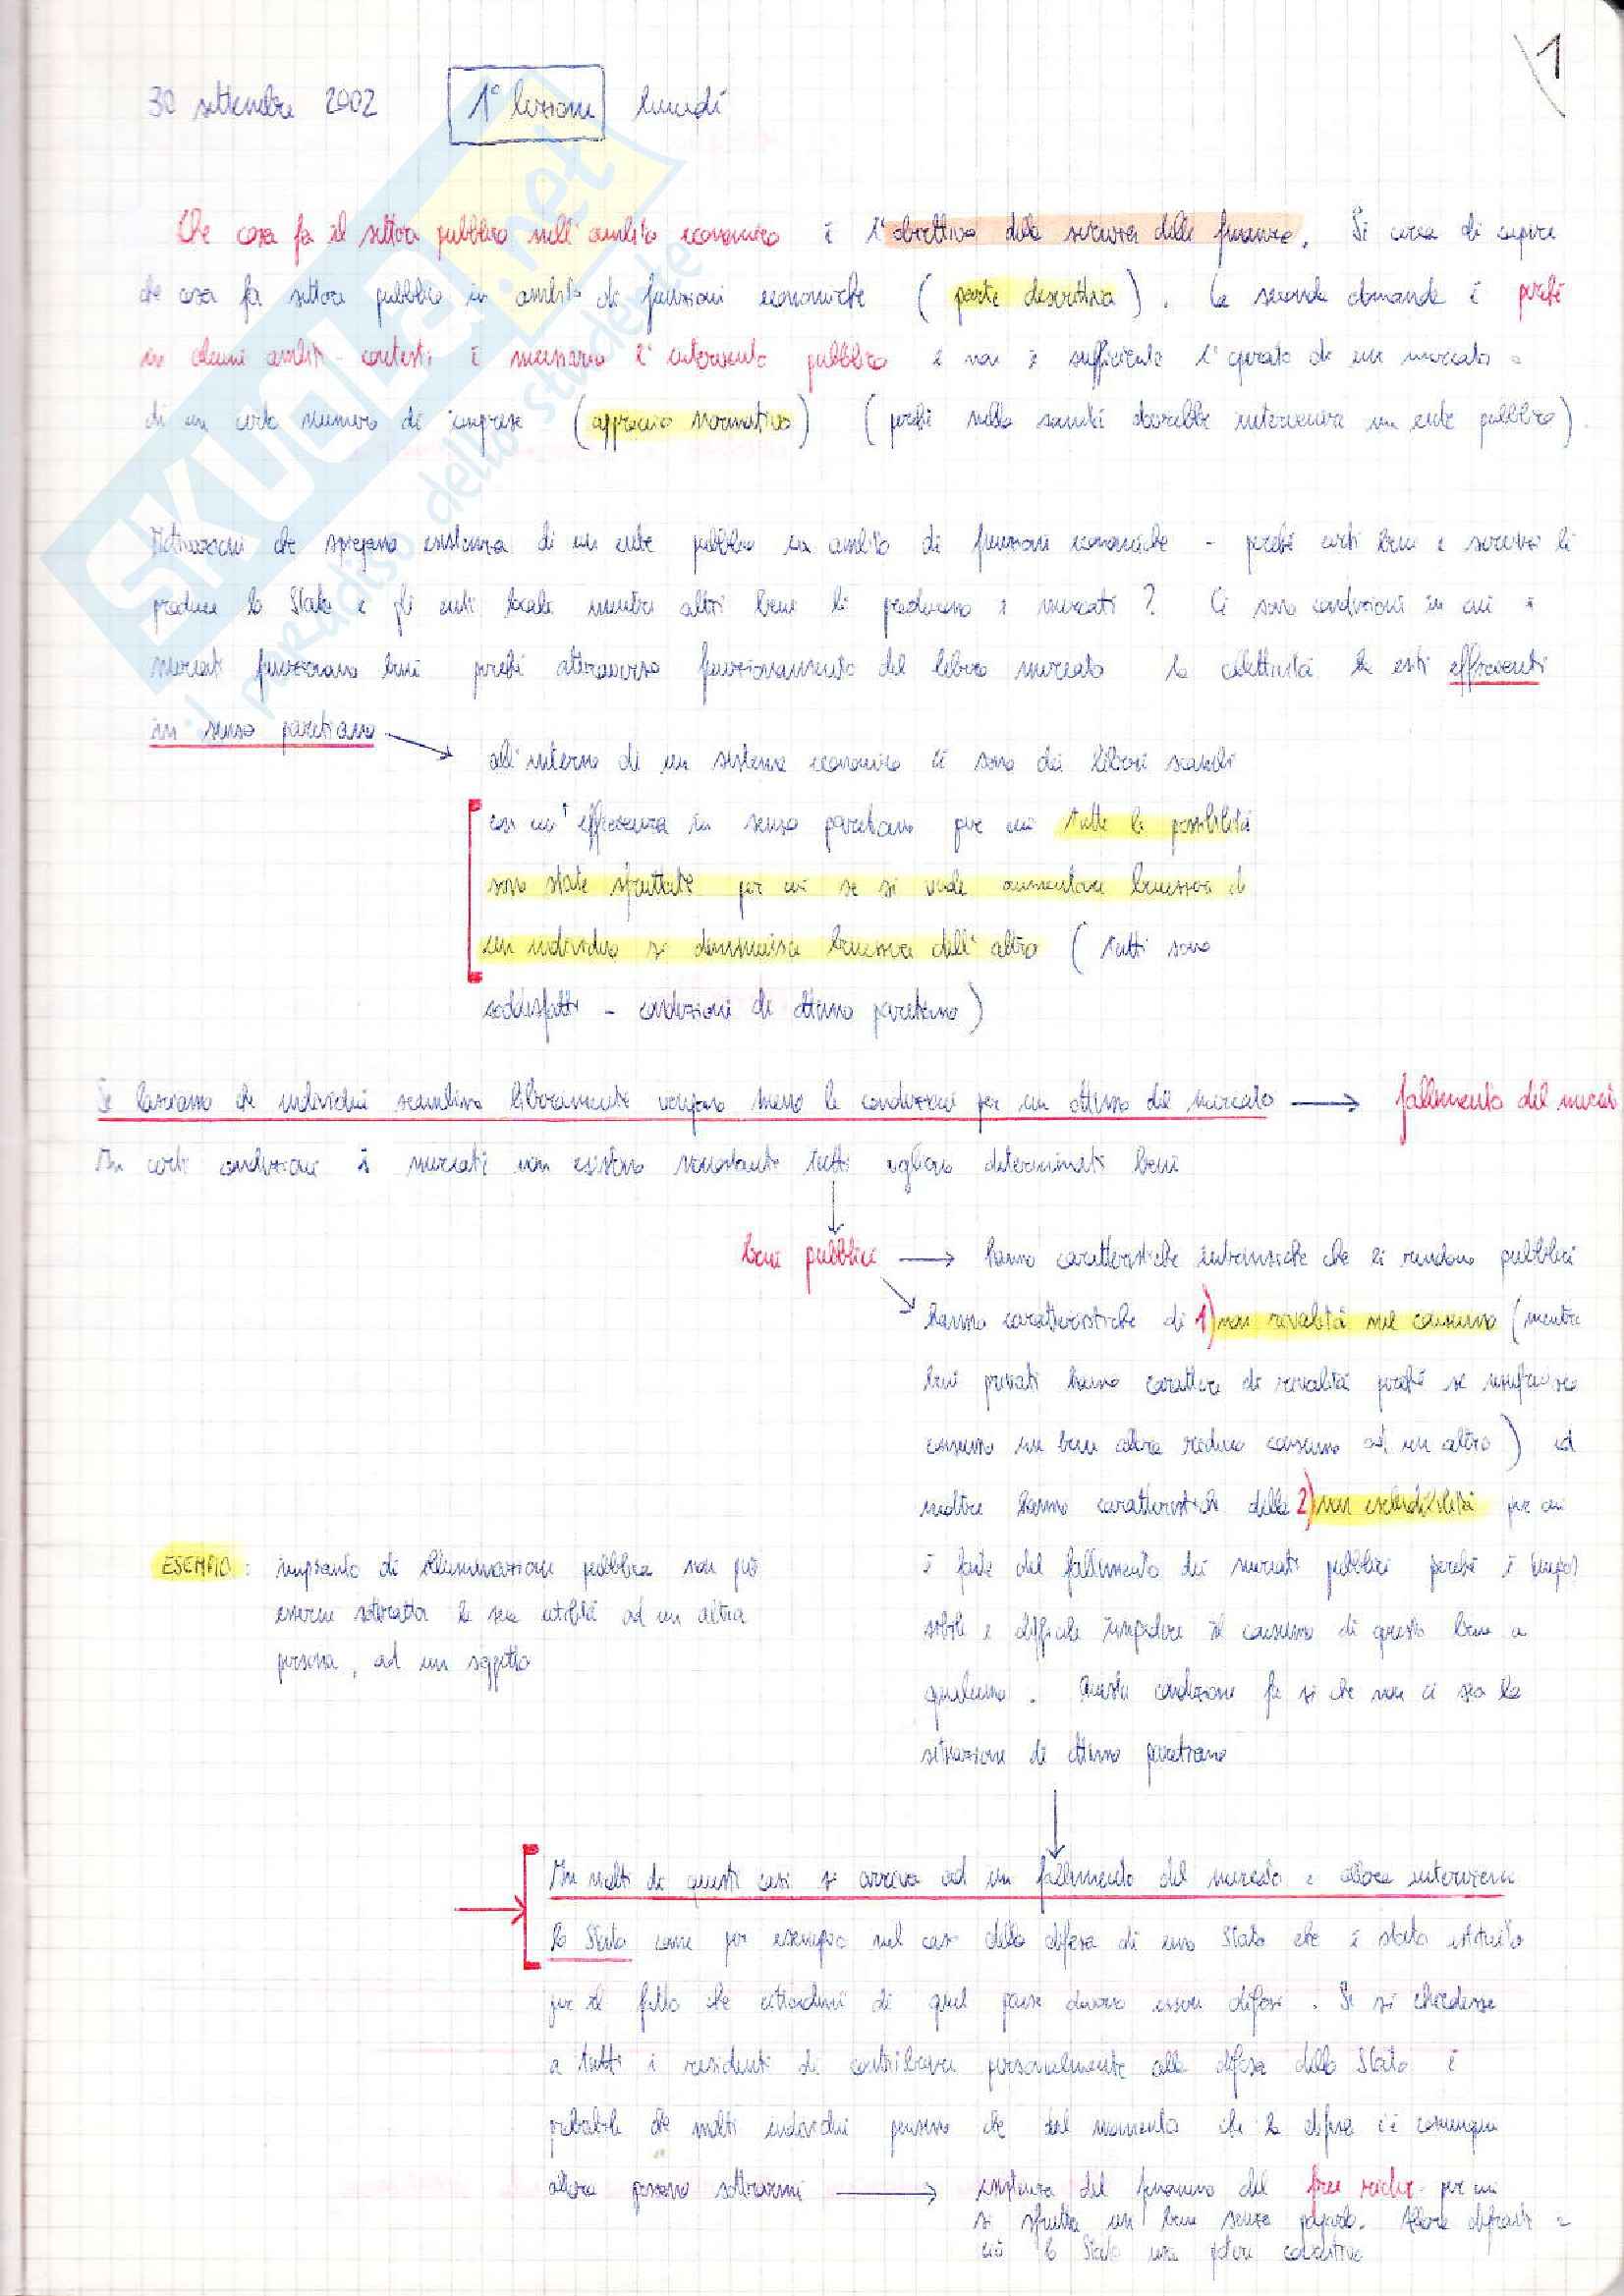 1
30 settembre 2002 1° lezione lunedì
Che cosa fa il settore pubblico nell'ambito economico è l'obiettivo della scienza delle finanze. Si cerca di capire
che cosa fa settore pubblico in ambito di funzioni economiche (parte descrittiva). La seconda domanda è perché
in alcuni ambiti - contesti è necessario l'intervento pubblico e non è sufficiente l'operato di un mercato o
di un certo numero di imprese (approccio normativo) (perché nella sanità dovrebbe intervenire un ente pubblico).
Motivazioni che spiegano esistenza di un ente pubblico in ambito di funzioni economiche - perché certi beni e servizi li
produce lo Stato e gli enti locali mentre altri beni li producono i mercati? Ci sono condizioni in cui i
mercati funzionano bene perché attraverso funzionamento del libero mercato la collettività ha esiti efficienti
in senso paretiano
all'interno di un sistema economico ci sono dei liberi scambi
con un'efficienza in senso paretiano per cui tutte le possibilità
sono state sfruttate per cui se si vuole aumentare benessere di
un individuo si diminuisce benessere dell'altro (tutti sono
soddisfatti - condizioni di ottimo paretiano)
Se lasciamo che individui scambino liberamente vengono meno le condizioni per un ottimo del mercato → fallimento del mercato
In certi condizioni i mercati non esistono nonostante tutti vogliano determinati beni
beni pubblici → hanno caratteristiche intrinsiche che li rendono pubblici
hanno caratteristiche di 1) non rivalità nel consumo (mentre
beni privati hanno carattere di rivalità perché se usufruisco
consumo un bene allora riduco consumo ad un altro) ed
inoltre hanno caratteristiche della 2) non escludibilità per cui
ESEMPIO: impianto di illuminazione pubblica non può
essere sottratta la sua utilità ad un altra
persona, ad un soggetto
è fonte del fallimento dei mercati pubblici perché è impos
sibile e difficile impedire il consumo di questo bene a
qualcuno. Questa condizione fa si che non ci sia la
situazione di ottimo paretiano
In molti di questi casi si arriva ad un fallimento del mercato e allora interviene
lo Stato come per esempio nel caso della difesa di uno Stato che è stato istituito
per il fatto che cittadini di quel paese devono essere difesi. Se si chiedesse
a tutti i residenti di contribuire personalmente alla difesa dello Stato è
probabile che molti individui pensino che dal momento che la difesa c'è comunque
allora possono sottrarmi → esistenza del fenomeno del free rider per cui
si sfrutta un bene senza pagarlo. Allora
ciò lo Stato usa potere coercitivo
SKUOLA.net
il paradiso dello studente